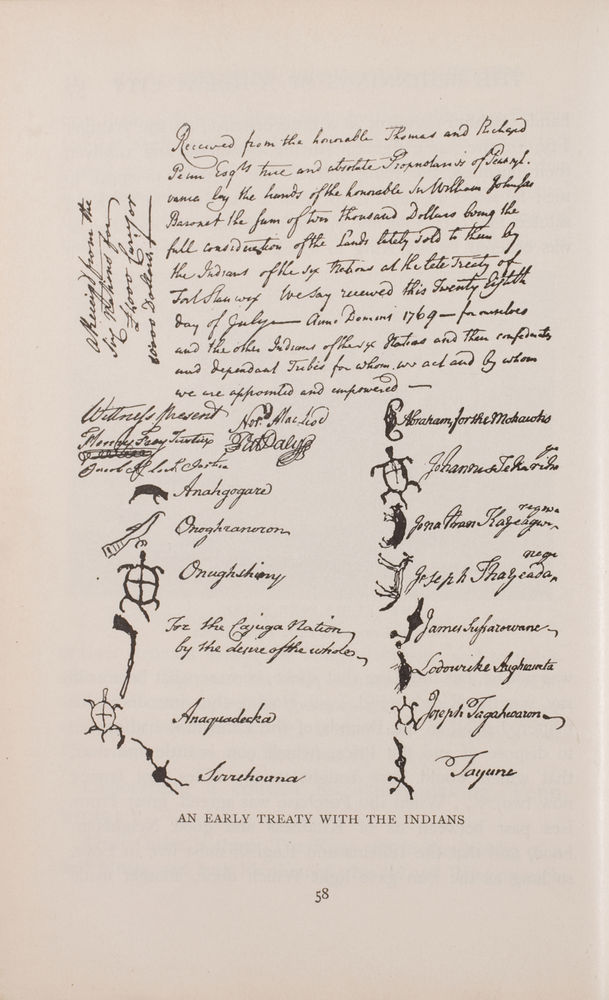 Received from the honorable Thomas and Richard
Penn Esqrs true and absolute Proprietaries of Pensyl.
vania by the hands of the honorable Sr William Johnson
Baronet the sum of ten thousand Dollars being the
full consideration of the Lands lately sold to them by
the Indians of the Six Nations at the late Treaty of
Fort Stanwix We say received this Twenty Eighth
day of July — Anno Domini 1769 — for ourselves
and the other Indians of the Six Nations and their confederates
and dependant Tribes for whom we act and by whom
we are appointed and empowered —
A Receipt from the
Six Nations for
10000 Dollars
Witness Present
Jacob
Abraham, for the Mohawks
Johannes
Anahgogare
Jonathan
Onoghranoron
Joseph
Onughshiny
James
For the Cajuga Nation
by the desire of the whole
Lodowicke
Anaquadecka
Joseph Tagahwaron
Sirrehoana
Tayune
AN EARLY TREATY WITH THE INDIANS
58